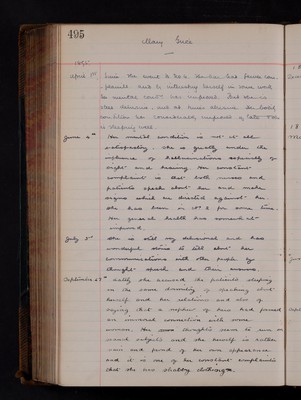 495
Mary Grice
1895
April 1st since she went to No 2. She has been
employed and by interesting herself in
her mental cond'n has improved but she is
still delusive, and at times abusive. Her bodily
condition has considerably improved of late & she
is sleeping well
June 4th Her mental condition is not at all
satisfactory. She is greatly under the
influence of hallucinations especially of
sight and hearing. Her constant
complaint is that both nurses and
patients speak about her and make
signs which are directed against her.
She has been in No 2 for some time.
Her general health has somewhat
improved.
July 5th She is still very delusional and has
wonderful stories to tell about her
communications with other people by
thought speech and other means.
September 27th Lately she accused the patients sleeping
in the same dormitory of speaking about
herself and her relations and also of
saying that a nephew of hers had formed
an immoral connection with some
woman. Her thoughts seem to run on
such subjects and she herself is rather
vain and proud of her own appearance
and it is one of her constant complaints
that she has shabby clothing.